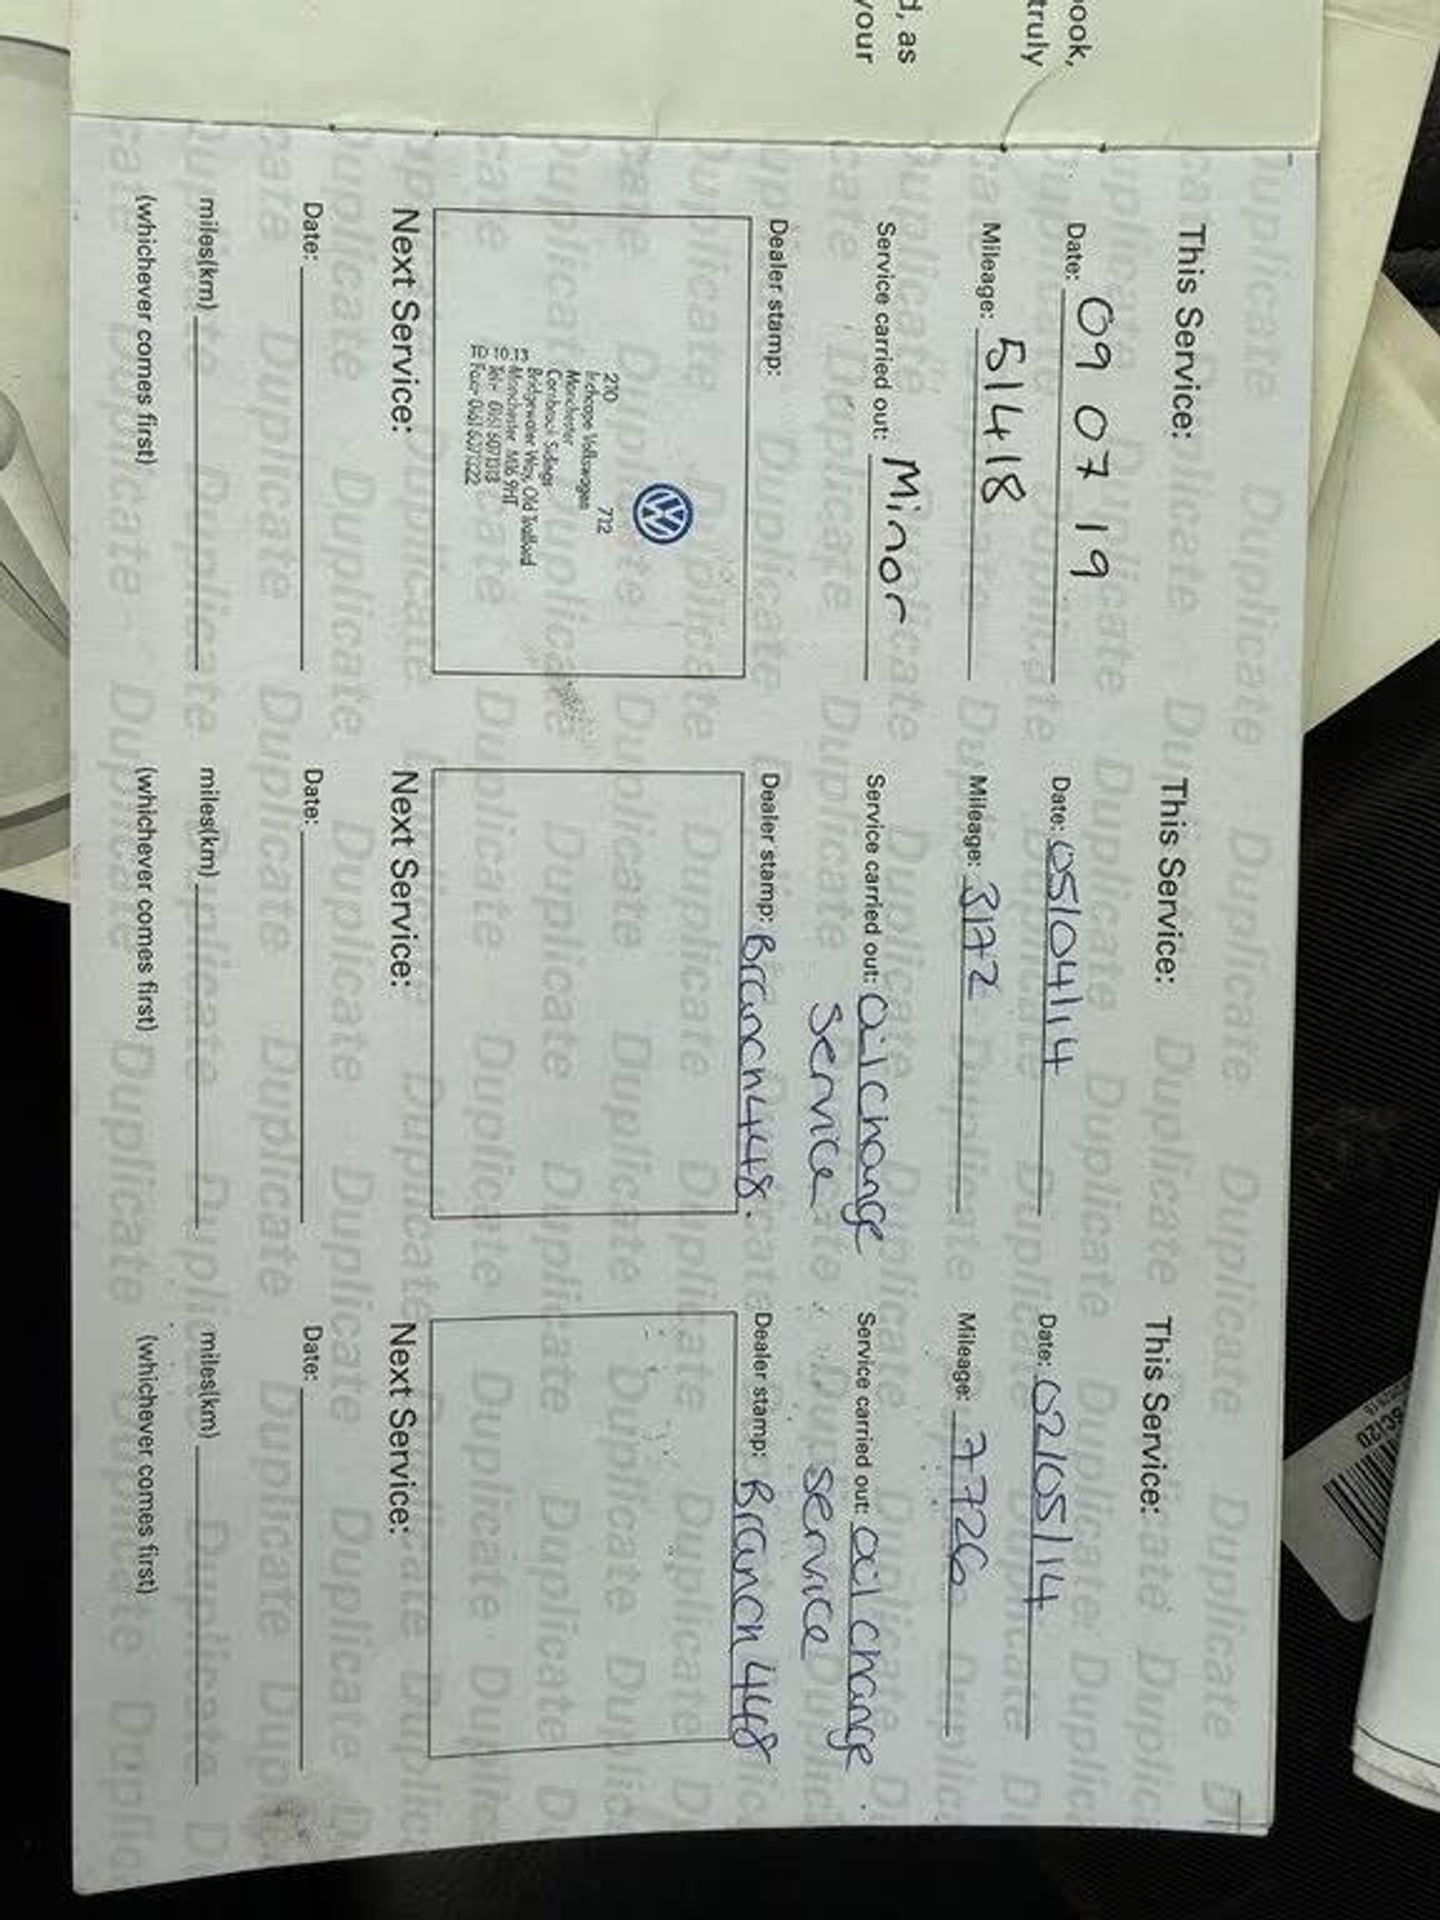 ook,
truly
d, as
your
This Service:
Date: 09 07 19
Mileage: 51418
Service carried out: Minor
Dealer stamp:
270 712
Inchcape Volkswagen
Manchester
Cornbrook Sidings
Bridgewater Way, Old Trafford
Manchester M16 9HT
TD 10.13
Next Service:
Date:
miles(km)
(whichever comes first)
This Service:
Date: 05/04/14
Mileage: 3172
Service carried out: oil change
Service
Dealer stamp: Branch 448.
Next Service:
Date:
miles(km)
(whichever comes first)
This Service:
Date: 02/05/14
Mileage: 7726
Service carried out: oil change
service
Dealer stamp: Branch 448
Next Service:
Date:
miles(km)
(whichever comes first)
Duplicate Duplicate Duplicate Duplicate Duplicate